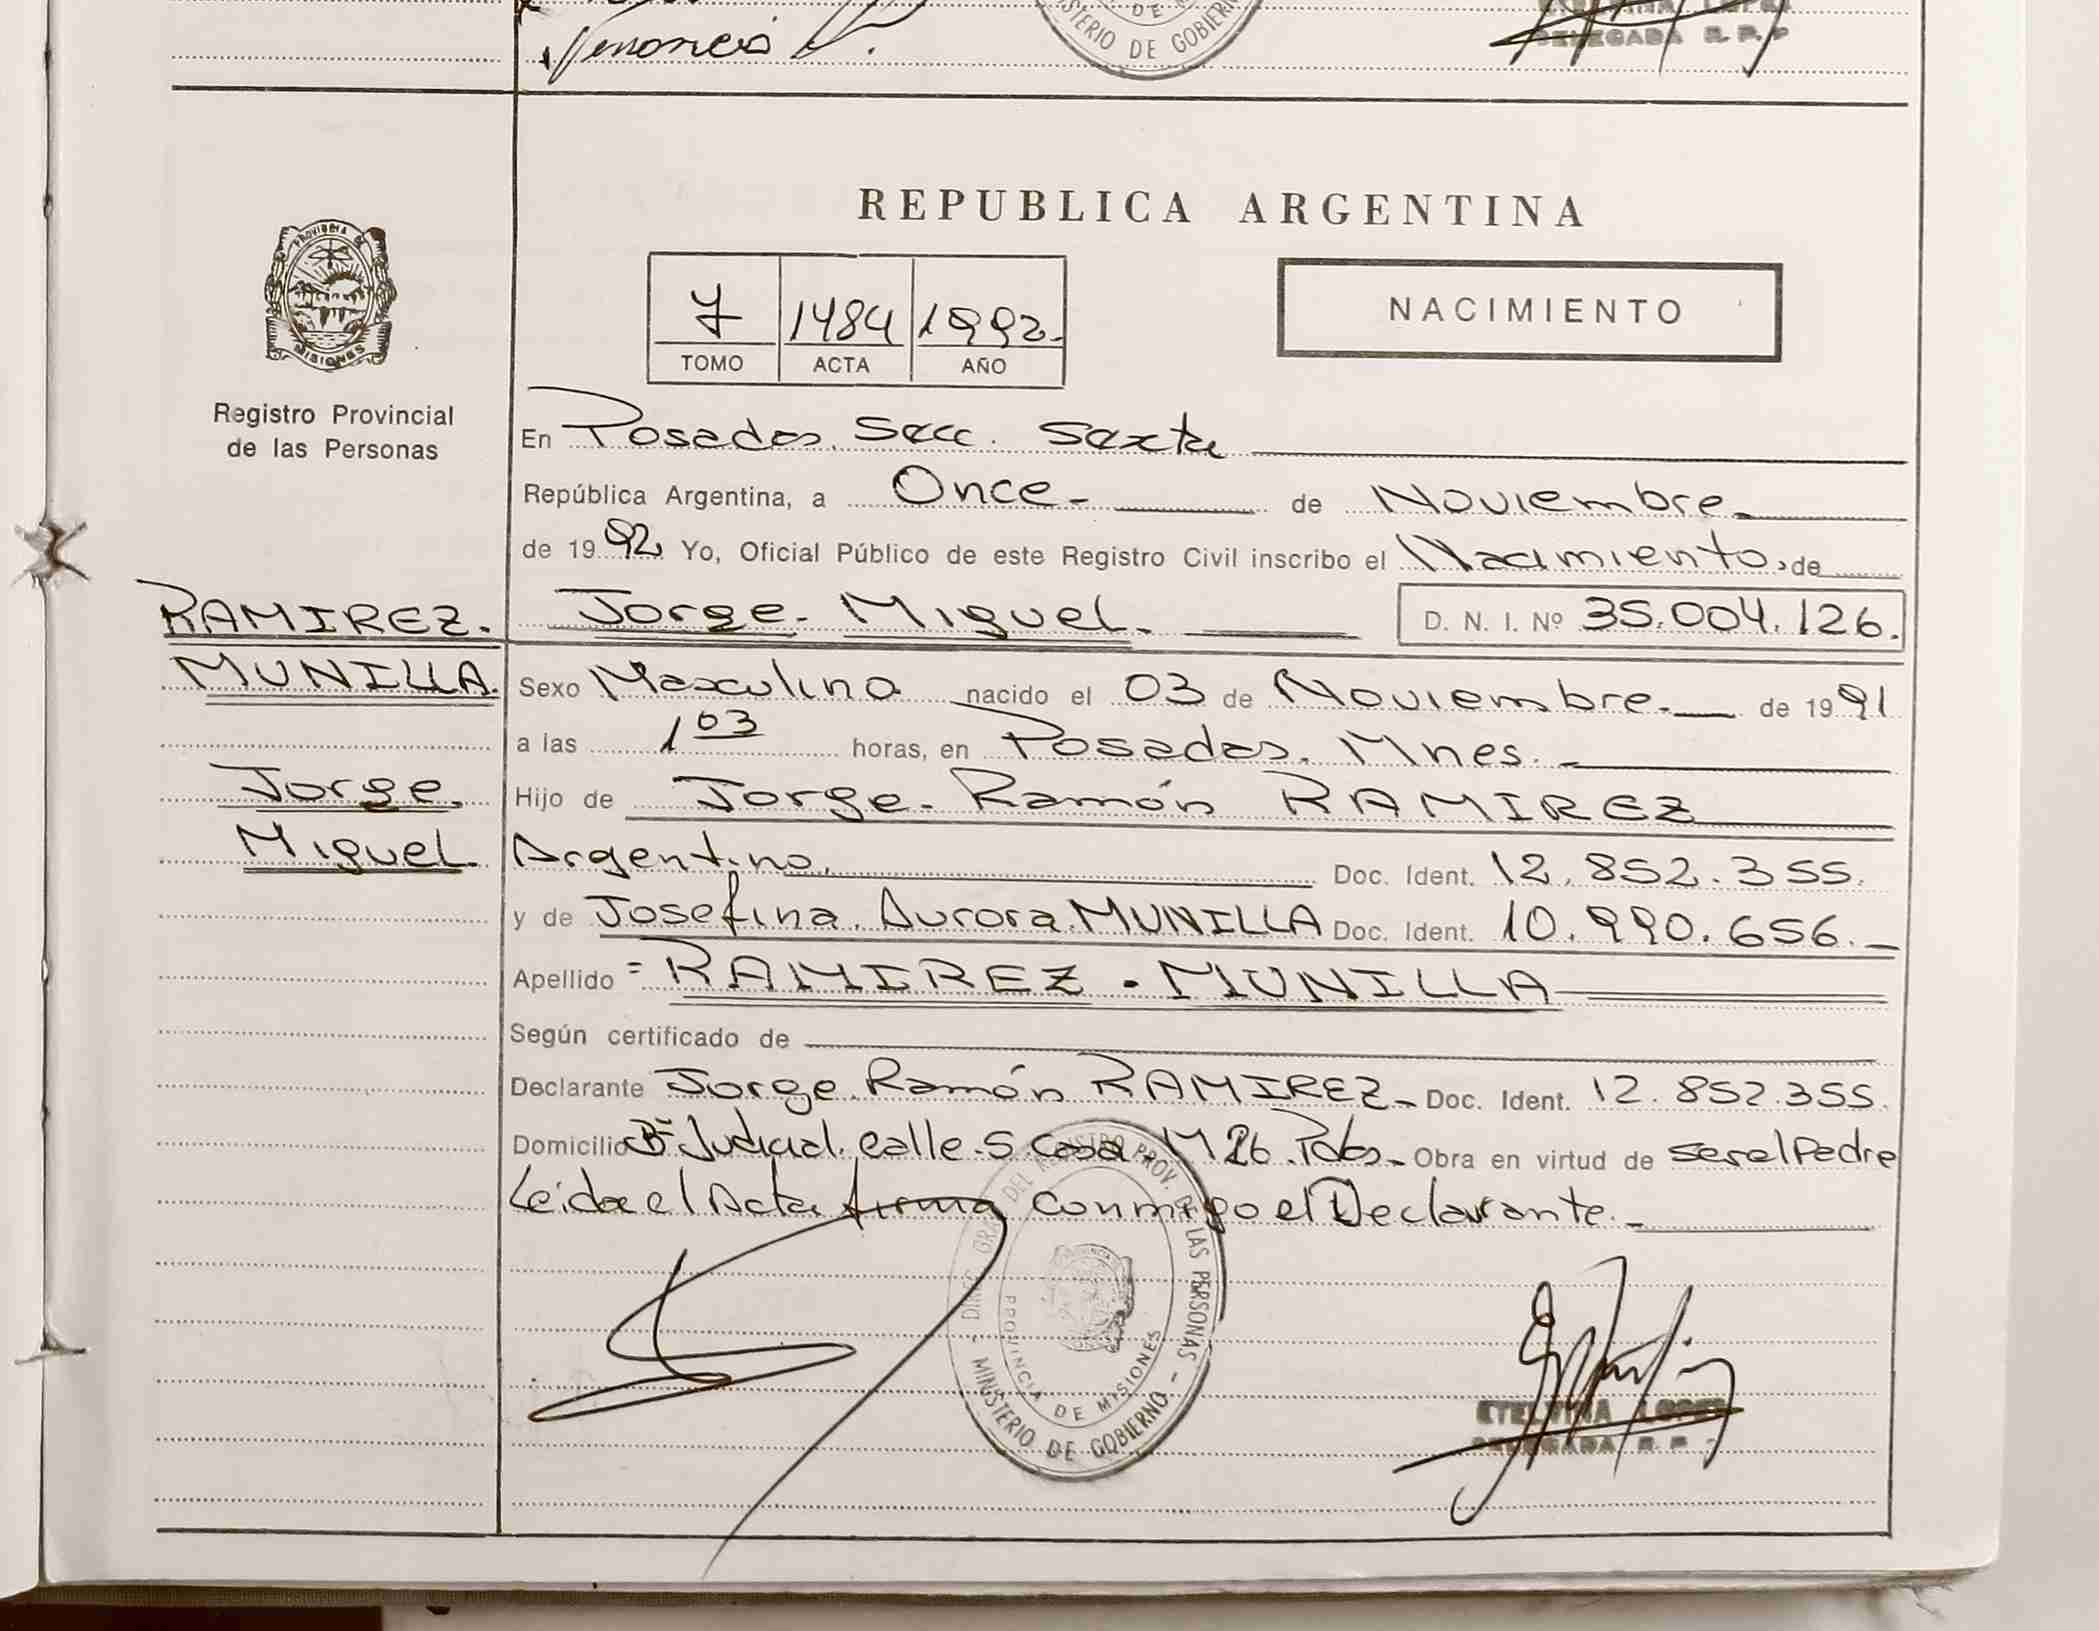 DE
MINISTERIO DE GOBIERNO
DELEGADA R. P. P
PROVINCIA DE
MISIONES
Registro Provincial
de las Personas
REPUBLICA ARGENTINA
7 1484 1992.
TOMO ACTA AÑO
NACIMIENTO
En Posadas. Secc. Sexta
República Argentina, a Once- de Noviembre-
de 1992 Yo, Oficial Público de este Registro Civil inscribo el Nacimiento, de
RAMIREZ. Jorge- Miguel. D. N. I. Nº 35.004.126.
MUNILLA. Sexo Masculino nacido el 03 de Noviembre.- de 1991
a las 1 03 horas, en Posadas. Mnes. -
Jorge. Hijo de Jorge- Ramón RAMIREZ
Miguel. Argentino. Doc. Ident. 12.852.355.
y de Josefina. Aurora. MUNILLA Doc. Ident. 10.990.656.-
Apellido = RAMIREZ - MUNILLA
Según certificado de
Declarante Jorge. Ramón RAMIREZ- Doc. Ident. 12.852.355.
Domicilio Bº Judicial. calle.5 casa. M 26. Pdas- Obra en virtud de ser el Padre
Leida el Acta firma conmigo el Declarante.-
DIREC. GRAL. DEL REGISTRO PROV. DE LAS PERSONAS - MINISTERIO DE GOBIERNO -
PROVINCIA DE MISIONES
ETELVINA LOPEZ
DELEGADA R. P.